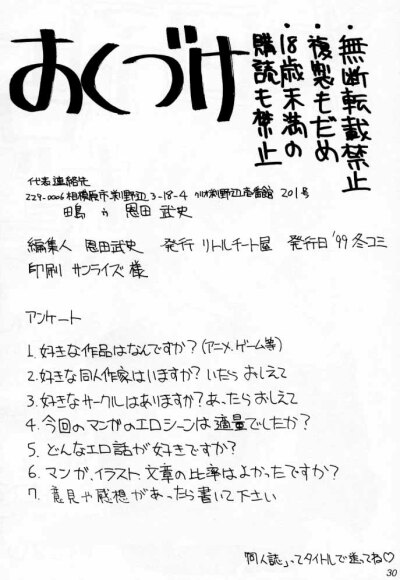 おくづけ
・無断転載禁止
・複製もだめ
・18歳未満の
購読も禁止
代表連絡先
229-0006 相模原市渕野辺 3-18-4 クリオ渕野辺壱番館 201号
嶋 方 恩田 武史
編集人 恩田武史 発行 リトルチート屋 発行日 '99 冬コミ
印刷 サンライズ 様
アンケート
1. 好きな作品はなんですか? (アニメ、ゲーム等)
2. 好きな同人作家はいますか? いたら おしえて
3. 好きなサークルはありますか? あったら おしえて
4. 今回のマンガのエロシーンは適量でしたか?
5. どんなエロ話が好きですか?
6. マンガ、イラスト、文章の比率はよかったですか?
7. 意見や感想があったら書いて下さい
「同人誌」ってタイトルで送ってね♡
30